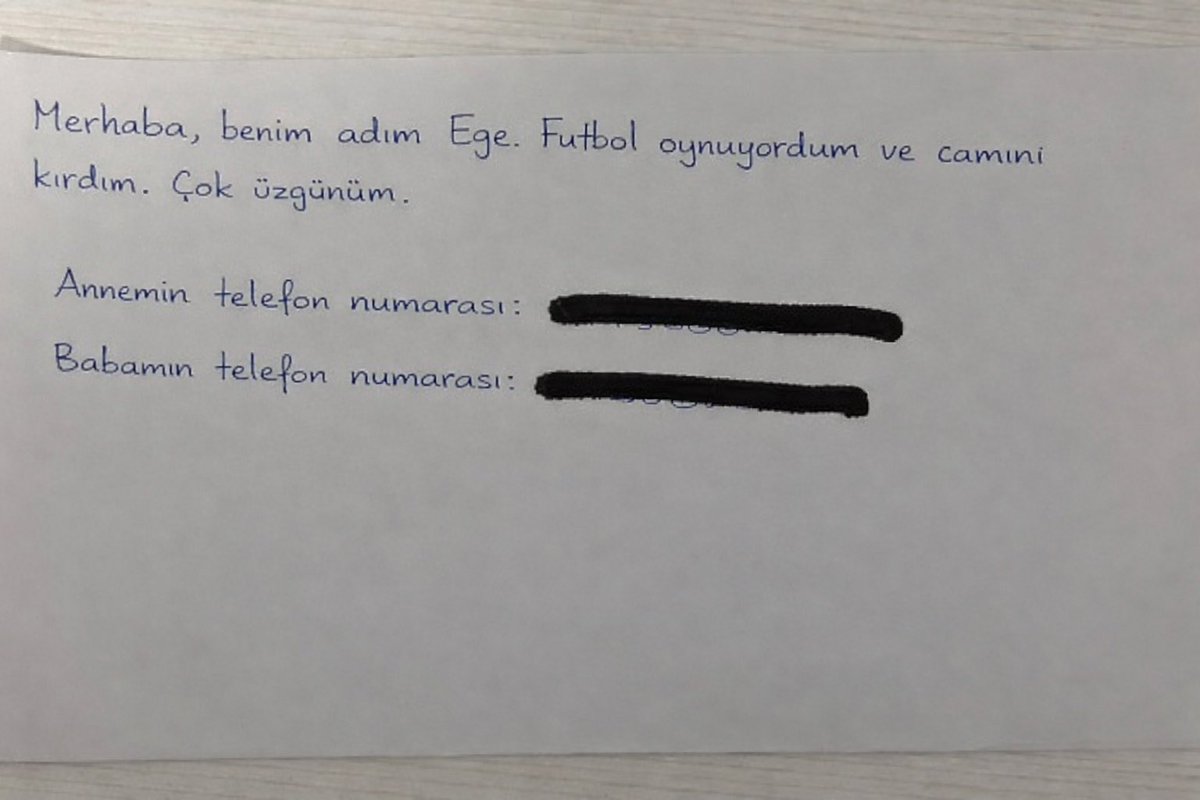 Merhaba, benim adım Ege. Futbol oynuyordum ve camıni
kırdım. Çok üzgünüm.
Annemin telefon numarası:
Babamın telefon numarası: